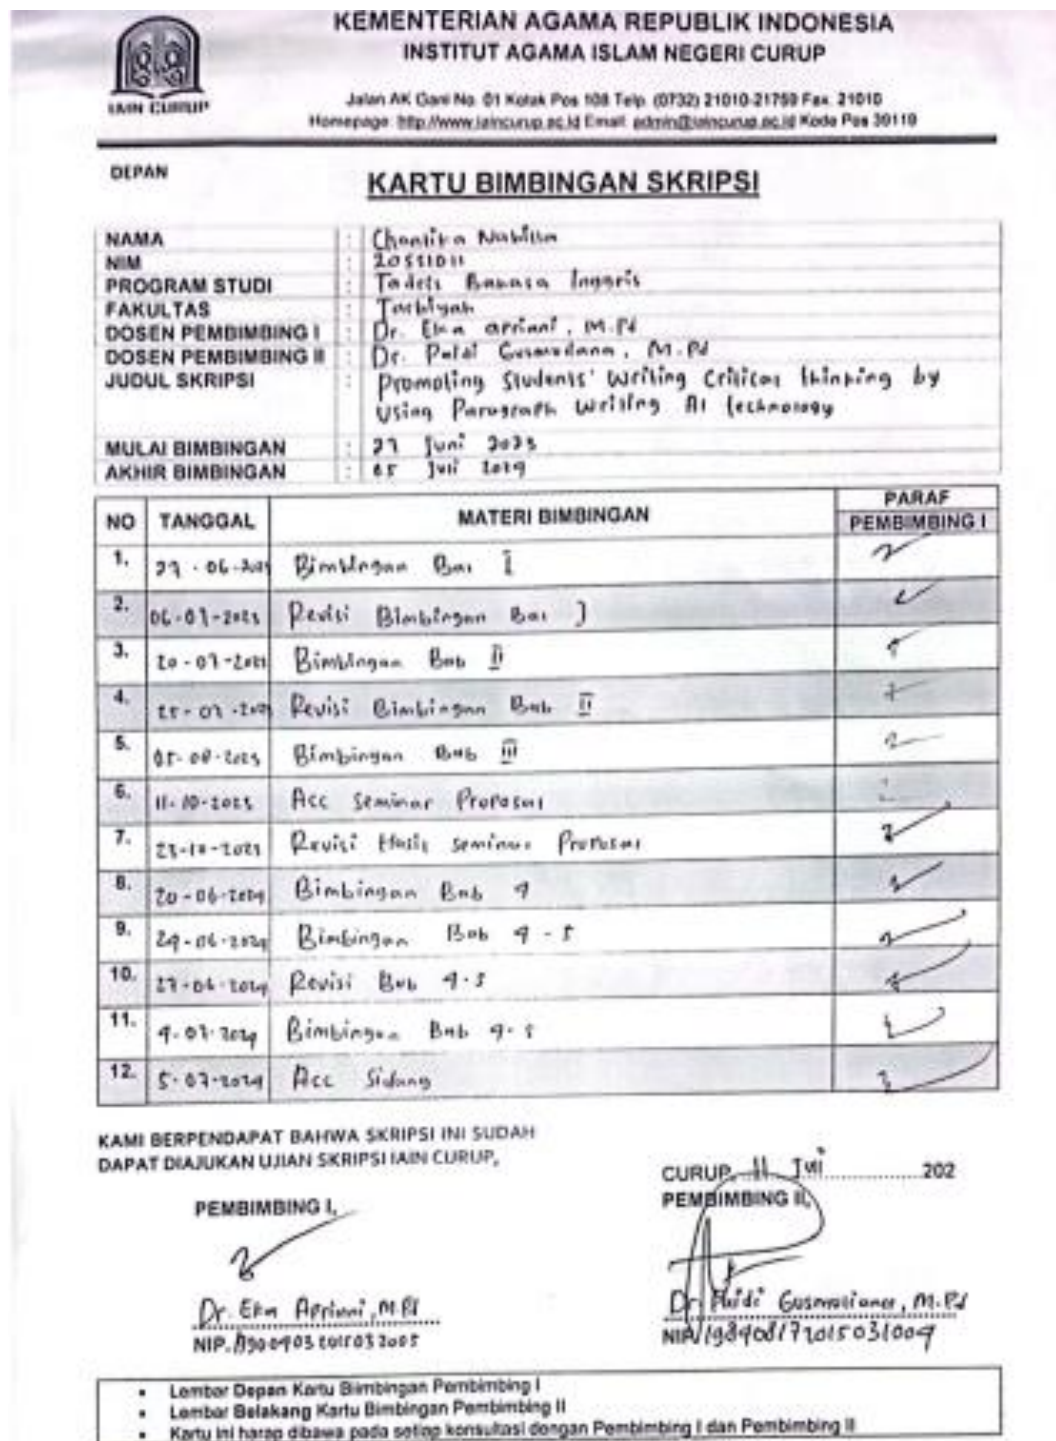 KEMENTERIAN AGAMA REPUBLIK INDONESIA
INSTITUT AGAMA ISLAM NEGERI CURUP
IAIN CURUP
Jalan AK Gani No. 01 Kotak Pos 108 Telp. (0732) 21010-21759 Fax. 21010
Homepage: http://www.iaincurup.ac.id Email: admin@iaincurup.ac.id Kode Pos 39119
DEPAN
KARTU BIMBINGAN SKRIPSI
NAMA : Chantika Nabilla
NIM : 20551011
PROGRAM STUDI : Tadris Bahasa Inggris
FAKULTAS : Tarbiyah
DOSEN PEMBIMBING I : Dr. Eka Apriani, M.Pd
DOSEN PEMBIMBING II : Dr. Paidi Gusmuliana, M.Pd
JUDUL SKRIPSI : Promoting Students' Writing Critical thinking by
Using Paragraph Writing AI technology
MULAI BIMBINGAN : 27 Juni 2023
AKHIR BIMBINGAN : 05 Juli 2024
NO TANGGAL MATERI BIMBINGAN PARAF
PEMBIMBING I
1. 27-06-2023 Bimbingan Bab I
2. 06-07-2023 Revisi Bimbingan Bab I
3. 20-07-2023 Bimbingan Bab II
4. 25-07-2023 Revisi Bimbingan Bab II
5. 05-08-2023 Bimbingan Bab III
6. 11-10-2023 Acc Seminar Proposal
7. 23-10-2023 Revisi Hasil seminar Proposal
8. 20-06-2024 Bimbingan Bab 4
9. 24-06-2024 Bimbingan Bab 4-5
10. 27-06-2024 Revisi Bab 4-5
11. 4-07-2024 Bimbingan Bab 4-5
12. 5-07-2024 Acc Sidang
KAMI BERPENDAPAT BAHWA SKRIPSI INI SUDAH
DAPAT DIAJUKAN UJIAN SKRIPSI IAIN CURUP,
CURUP, 11 Juli 202
PEMBIMBING I, PEMBIMBING II,
Dr. Eka Apriani, M.Pd Dr. Paidi Gusmuliana, M.Pd
NIP. 199004032015032005 NIP. 198408172015031004
• Lembar Depan Kartu Bimbingan Pembimbing I
• Lembar Belakang Kartu Bimbingan Pembimbing II
• Kartu ini harap dibawa pada setiap konsultasi dengan Pembimbing I dan Pembimbing II